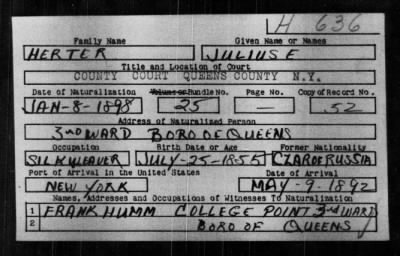 H 636
Family Name Given Name or Names
HERTER JULIUS E
Title and Location of Court
COUNTY COURT QUEENS COUNTY N.Y.
Date of Naturalization Volume or Bundle No. Page No. Copy of Record No.
JAN-8-1898 25 — 52
Address of Naturalized Person
3rd WARD BORO OF QUEENS
Occupation Birth Date or Age Former Nationality
SILK WEAVER JULY-25-1855 CZAR OF RUSSIA
Port of Arrival in the United States Date of Arrival
NEW YORK MAY-9-1892
Names, Addresses and Occupations of Witnesses To Naturalization
1 FRANK HUMM COLLEGE POINT 3rd WARD
2 BORO OF QUEENS